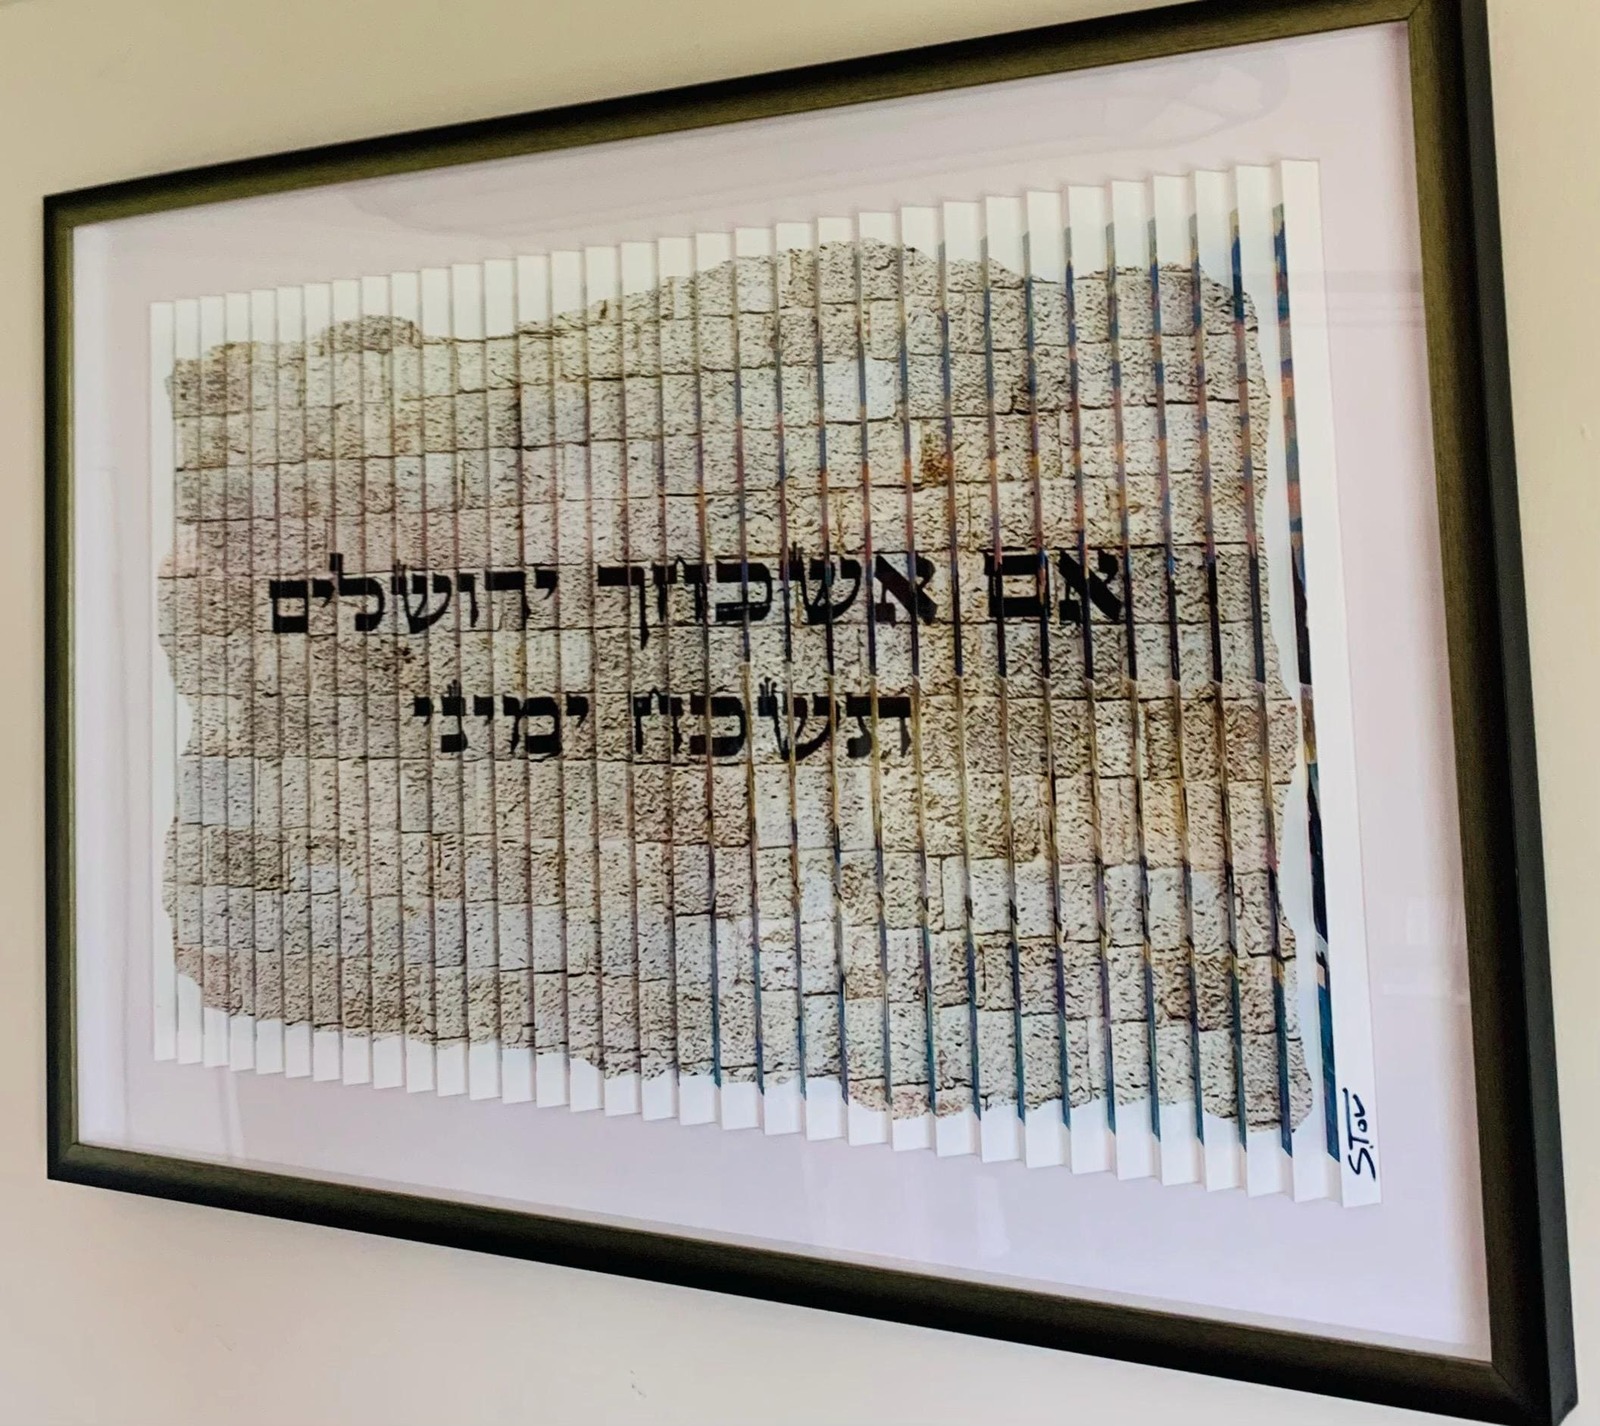 אם אשכחך ירושלים
תשכח ימיני
S.Tov